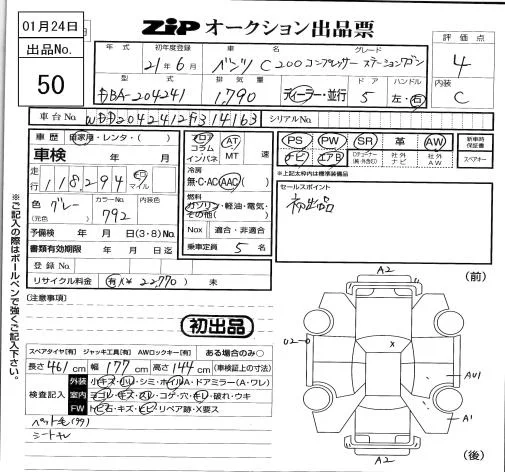 01月24日
出品No.
50
ZIP オークション出品票
評価点
4
内装
C
年式 初年度登録 車名 グレード
21年6月 ベンツ C200コンプレッサー ステーションワゴン
型式 排気量 ドア ハンドル
DBA-204241 1,790 ディーラー・並行 5 左・右
車台No. WDD2042412F314163 シリアルNo.
車歴 自家用・レンタ・( )
車検 年 月
走行 118,294 キロ マイル
色 グレー (元色) カラーNo. 792 内装色
予備検 年 月 日(3・8)No.
書類有効期限 年 月 日迄
登録No.
リサイクル料金 有(¥ 22,770) 未
フロア コラム インパネ
AT MT 速
冷房
無・C・AC AAC
燃料
ガソリン・軽油・電気・その他( )
Nox 適合・非適合
乗車定員 5 名
PS PW SR 革 AW
ナビ エアB 社外ナビ 社外AW
新車時保証書
スペアキー
※上記太枠内は標準装備品
セールスポイント
初出品
※ご記入の際はボールペンで強くご記入下さい。
(注意事項)
初出品
スペアタイヤ[有] ジャッキ工具[有] AWロックキー[有] ある場合のみ○
長さ 461 cm 幅 177 cm 高さ 144 cm (車検証上の寸法)
検査記入
外装 小キズ・小凹・シミ・ホイルA・ドアミラー(A・ワレ)
室内 ヨゴレ・キズ・スレ・コゲ・穴・キレ・破れ・ウキ
FW トビ石・キズ・ヒビ・リペア跡・X要ス
シートキレ
(前)
A2
U2
X
AU1
A1
A2
(後)